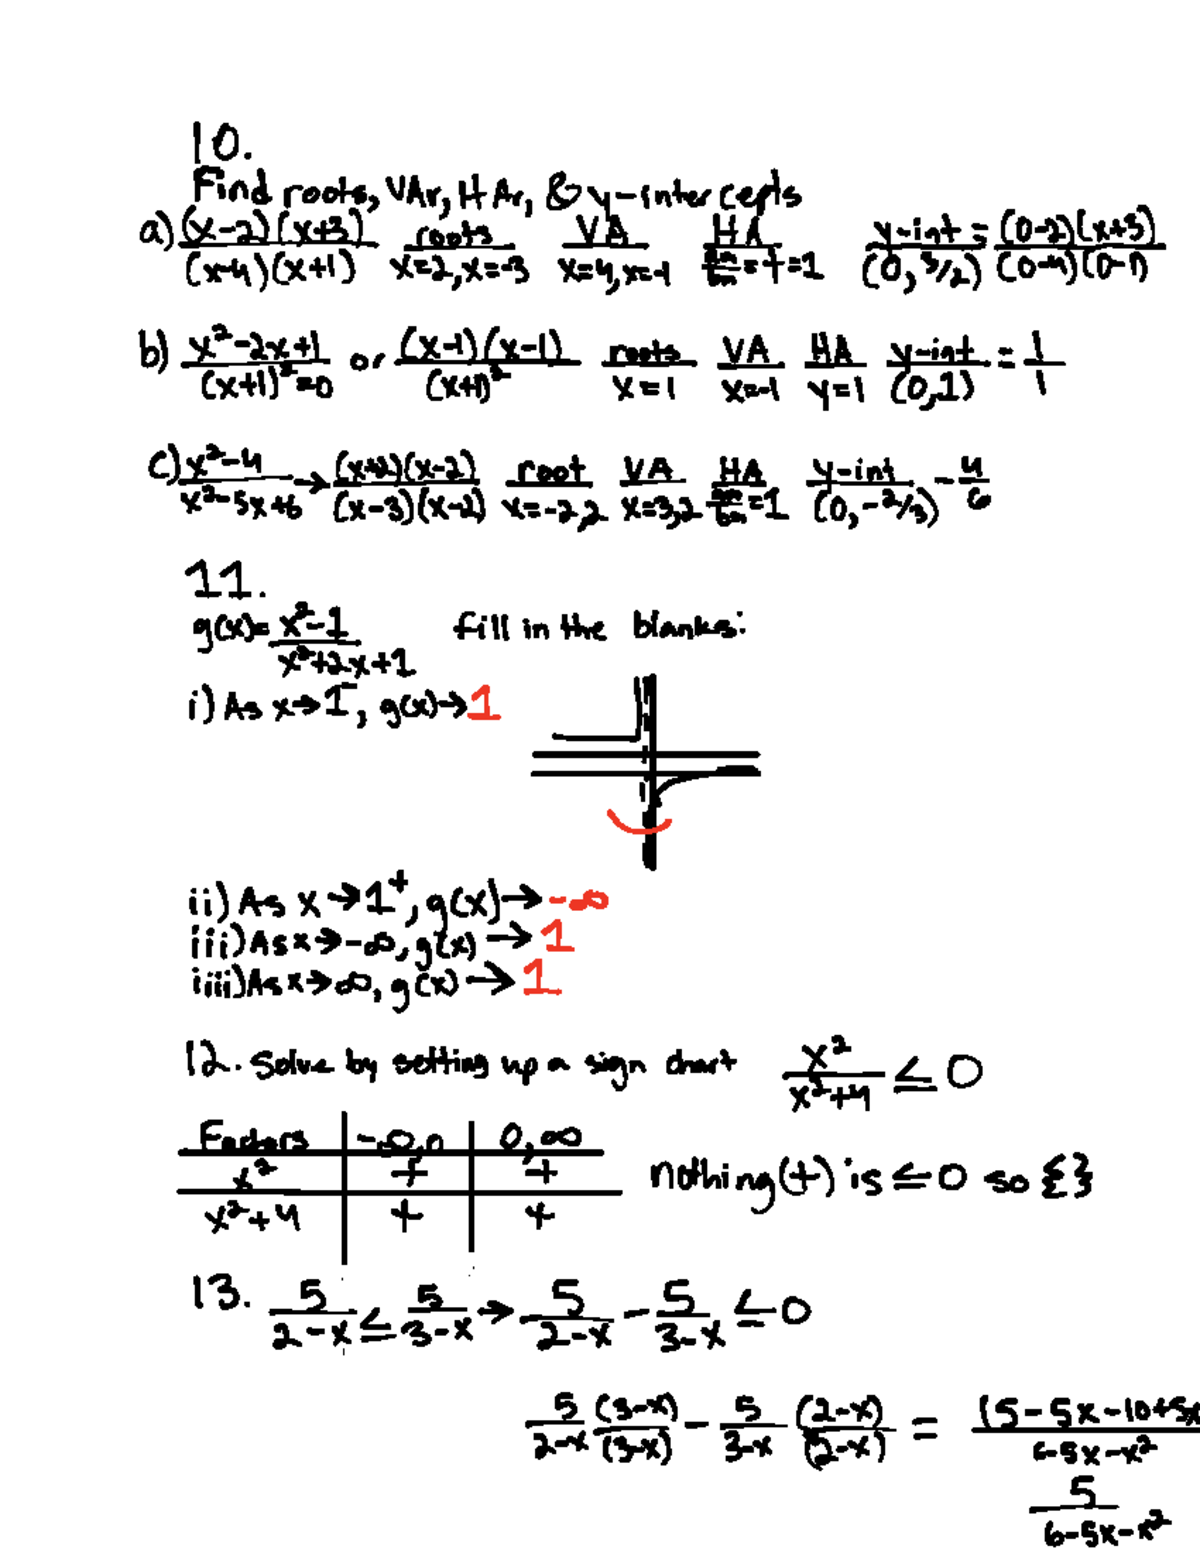 10.
Find roots, VAr, HAr, & y-intercepts
a) (x-2)(x+3)/(x-4)(x+1) roots x=2, x=-3 VA x=4, x=-1 HA an/bn = 1 = 1 y-int (0, 3/2) = (0-2)(x+3)/(0-4)(0-1)
b) x²-2x+1/(x+1)²=0 or (x-1)(x-1)/(x+1)² roots x=1 VA x=-1 HA y=1 y-int (0,1) = 1/1
c) x²-4/x²-5x+6 → (x+2)(x-2)/(x-3)(x-2) root x=-2,2 VA x=3,2 HA an/bn=1 y-int (0,-2/3) -4/6
11.
g(x)= x²-1/x²+2x+1 fill in the blanks:
i) As x→1⁻, g(x)→1
ii) As x→1⁺, g(x)→-∞
iii) As x→-∞, g(x)→1
iiii) As x→∞, g(x)→1
12. Solve by setting up a sign chart x²/x²+4 ≤ 0
Factors 0,∞
x² + +
x²+4 + +
nothing(+) is ≤0 so {}
13. 5/2-x ≤ 5/3-x → 5/2-x - 5/3-x ≤0
5/2-x (3-x)/(3-x) - 5/3-x (2-x)/(2-x) = 15-5x-10+5x/6-5x-x²
5/6-5x-x²